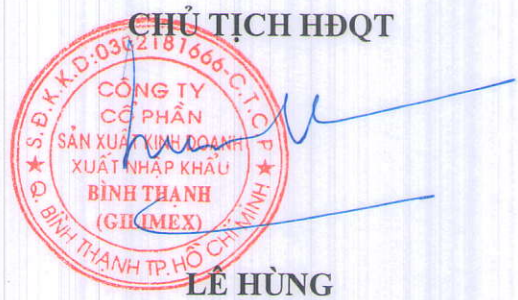 CHỦ TỊCH HĐQT
S.Đ.K.K.D:0302181666-C.T.C.P
CÔNG TY
CỔ PHẦN
SẢN XUẤT KINH DOANH
XUẤT NHẬP KHẨU
BÌNH THẠNH
(GILIMEX)
Q. BÌNH THẠNH TP. HỒ CHÍ MINH
LÊ HÙNG